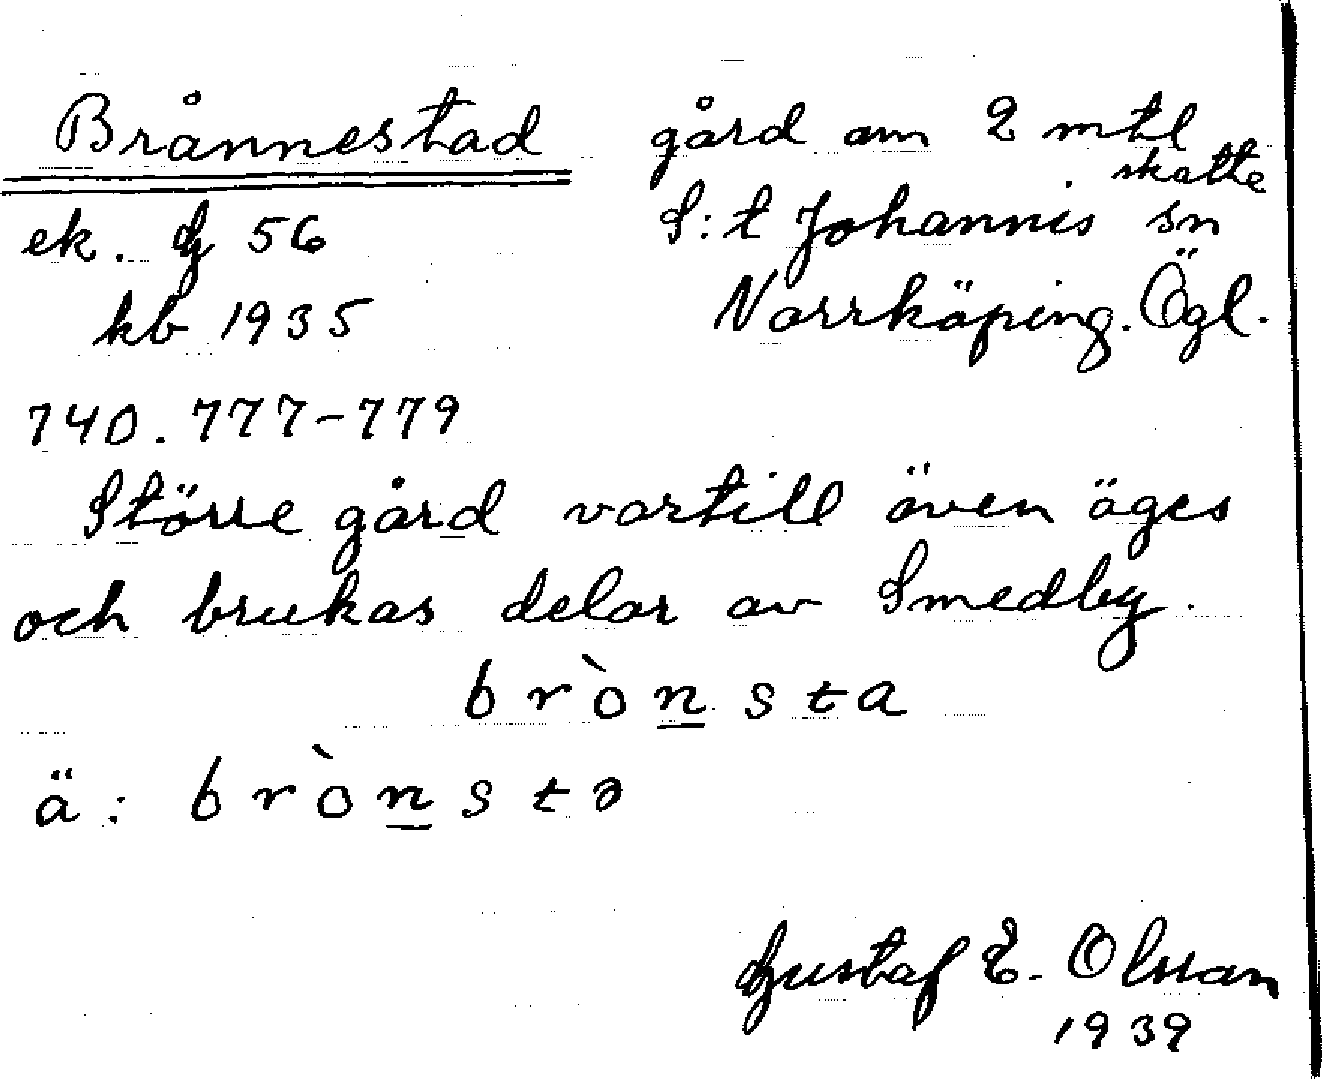 Brånnestad gård om 2 mtl skatte
ek. G 56 S:t Johannis sn
kb 1935 Norrköping. Ögl.
740.777-779
Större gård vartill även äges
och brukas delar av Smedby.
bròn̲sta
ä: bròn̲stə
Gustaf E. Olsson
1939